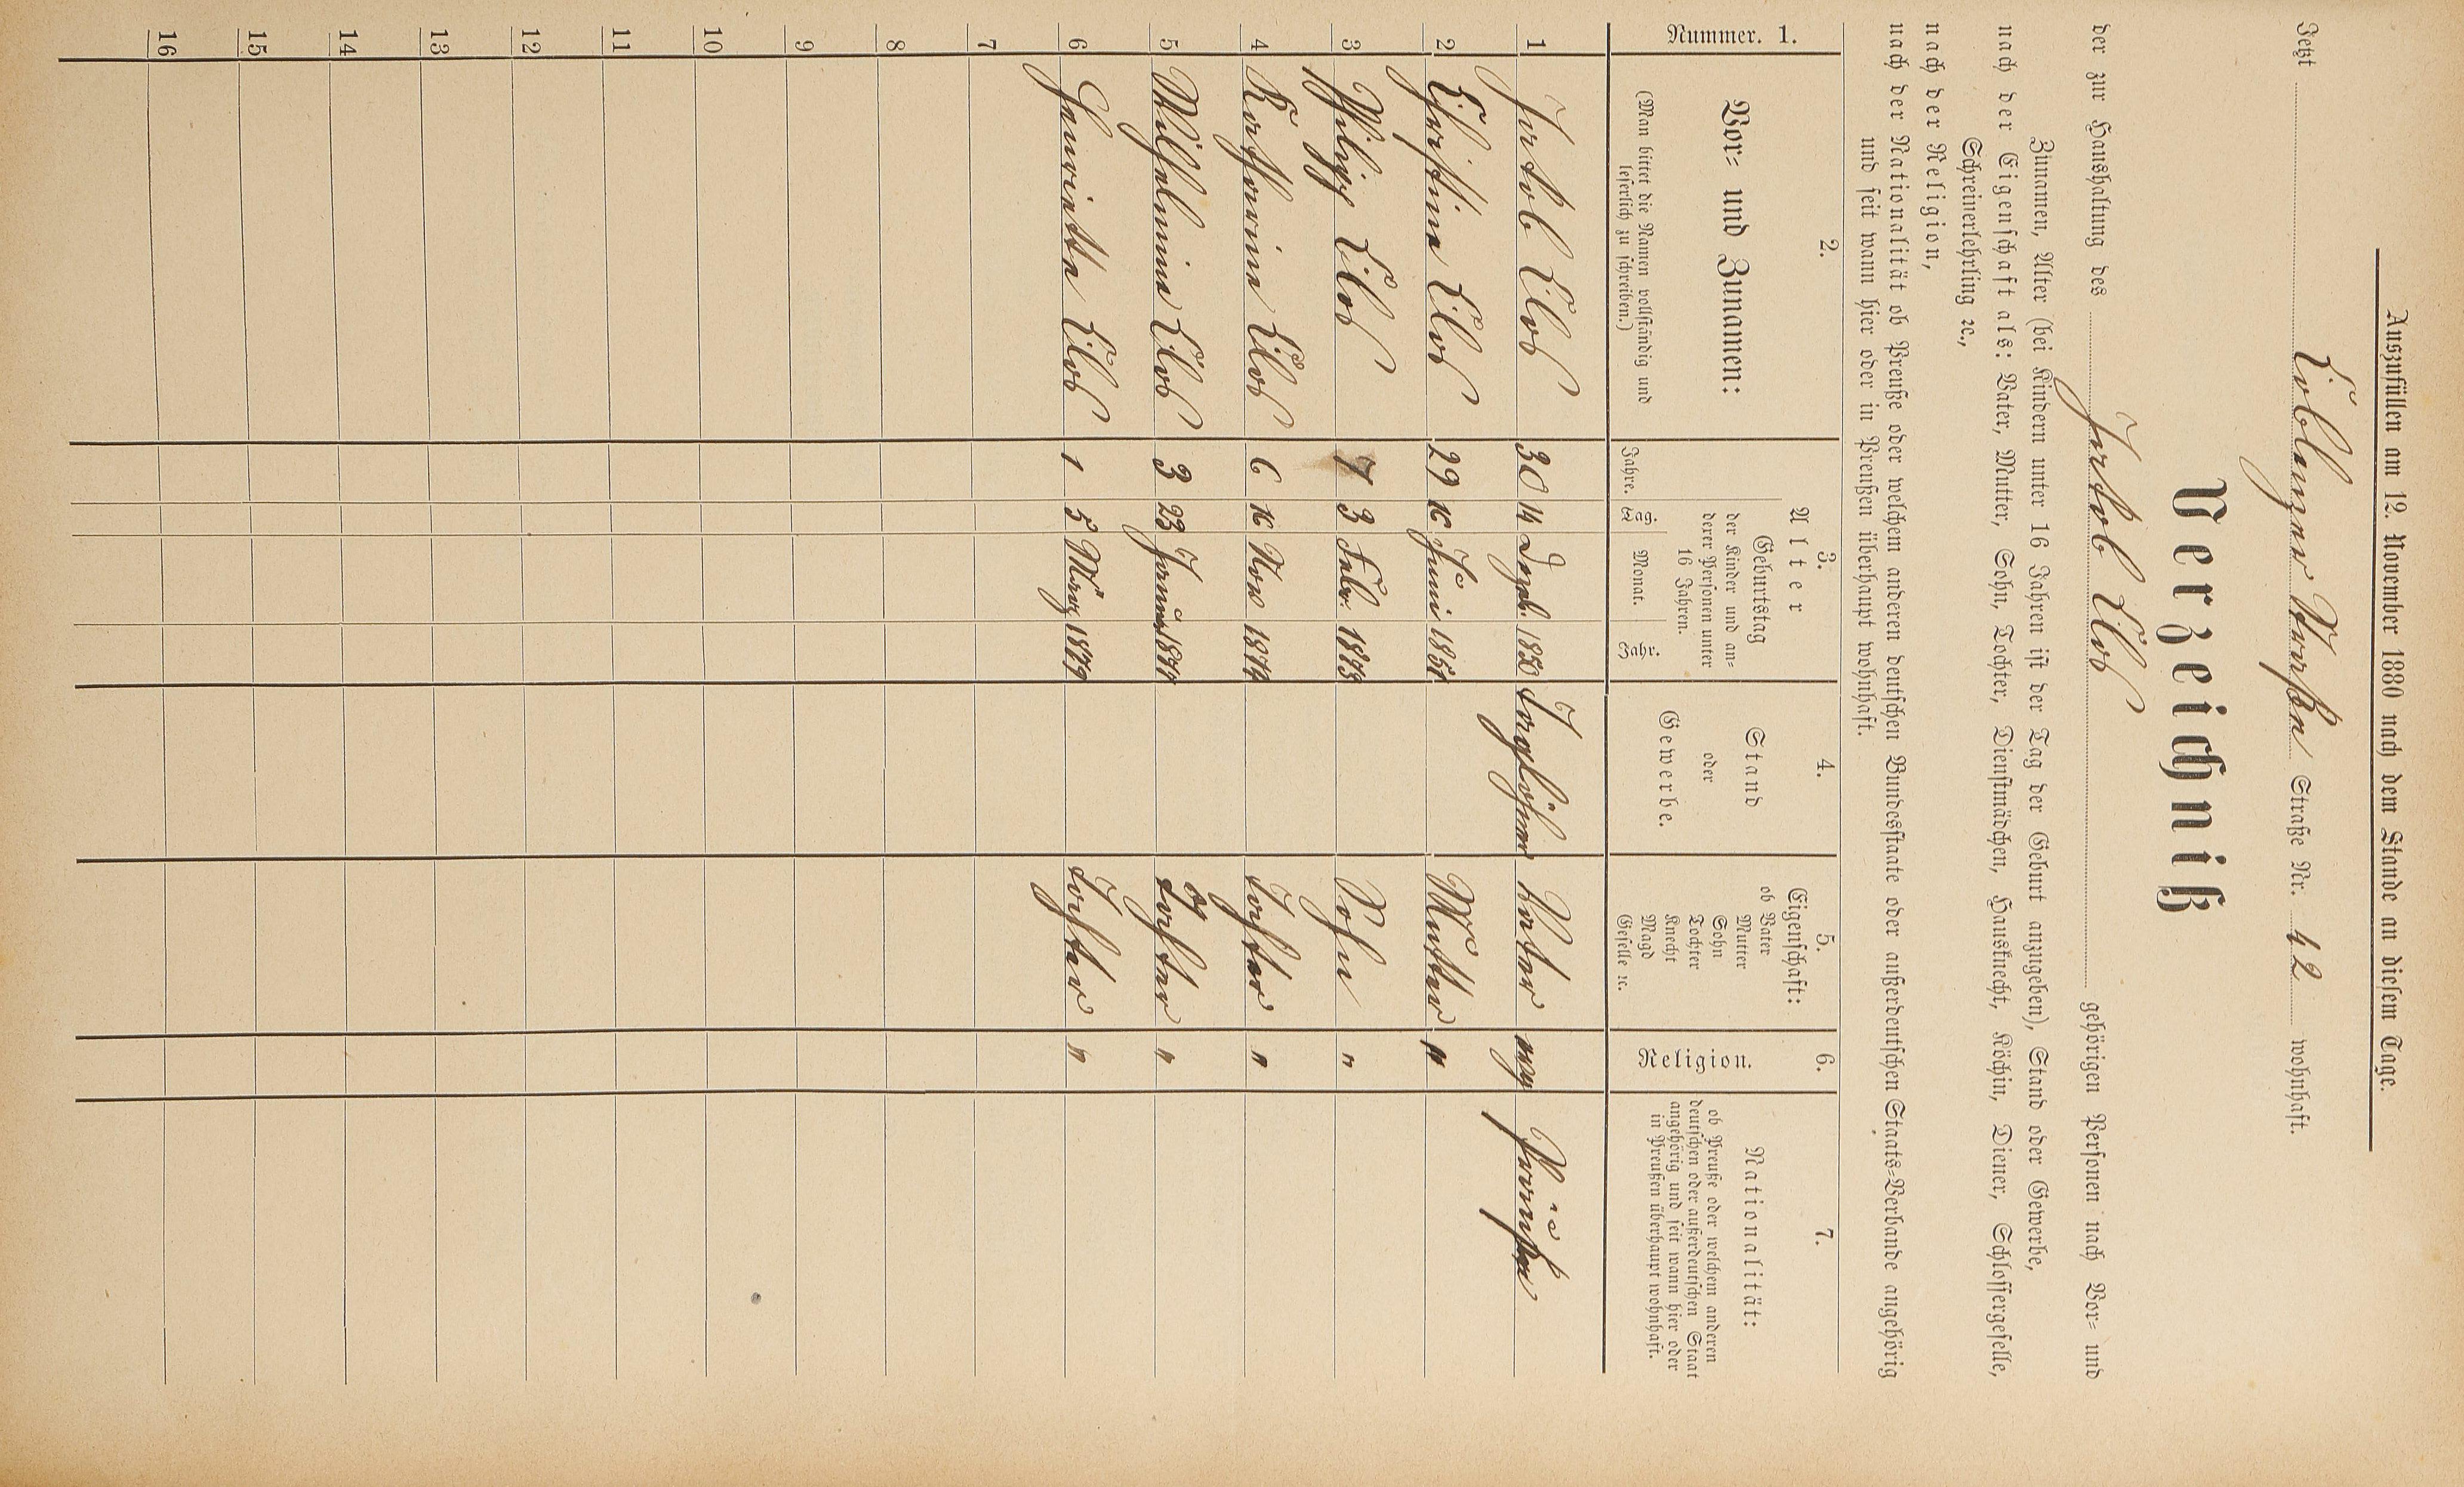 Auszufüllen am 12. November 1880 nach dem Stande an diesem Tage.
Jetzt Koblenzer Straße Straße Nr. 42 wohnhaft.
Verzeichniß
der zur Haushaltung des Jakob gehörigen Personen nach Vor- und
Zunamen, Alter (bei Kindern unter 16 Jahren ist der Tag der Geburt anzugeben), Stand oder Gewerbe,
nach der Eigenschaft als: Vater, Mutter, Sohn, Tochter, Dienstmädchen, Hausknecht, Köchin, Diener, Schlossergeselle,
Schreinerlehrling ꝛc.,
nach der Religion,
nach der Nationalität ob Preuße oder welchem anderen deutschen Bundesstaate oder außerdeutschen Staats-Verbande angehörig
und seit wann hier oder in Preußen überhaupt wohnhaft.
Nummer. 1.
2.
Vor- und Zunamen:
(Man bittet die Namen vollständig und
leserlich zu schreiben.)
3.
Alter
Geburtstag
der Kinder und an-
derer Personen unter
16 Jahren.
Jahre. Tag. Monat. Jahr.
4.
Stand
oder
Gewerbe.
5.
Eigenschaft:
ob Vater
Mutter
Sohn
Tochter
Knecht
Magd
Geselle ꝛc.
6.
Religion.
7.
Nationalität:
ob Preuße oder welchem anderen
deutschen oder außerdeutschen Staat
angehörig und seit wann hier oder
in Preußen überhaupt wohnhaft.
1 Jakob 30 14 Dezb. 1850 Taglöhner Vater Preuße
2 Christina 29 16 Juni 1851 Mutter "
3 Philipp 7 3 Febr. 1873 Sohn "
4 Katharina 6 16 Nov 1874 Tochter "
5 Wilhelmina 3 23 Januar 1877 Tochter "
6 Henriette 1 5 März 1879 Tochter "
7
8
9
10
11
12
13
14
15
16